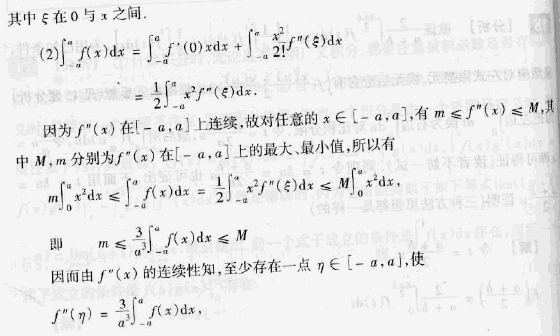 其中 ξ 在 0 与 x 之间.
(2)∫_{-a}^{a} f(x)dx = ∫_{-a}^{a} f′(0)xdx + ∫_{-a}^{a} x²/2! f″(ξ)dx
= 1/2 ∫_{-a}^{a} x²f″(ξ)dx.
因为 f″(x) 在[-a,a]上连续,故对任意的 x∈[-a,a],有 m ≤ f″(x) ≤ M,其
中 M,m 分别为 f″(x) 在[-a,a]上的最大、最小值,所以有
m∫_{0}^{a} x²dx ≤ ∫_{-a}^{a} f(x)dx = 1/2 ∫_{-a}^{a} x²f″(ξ)dx ≤ M∫_{0}^{a} x²dx,
即 m ≤ 3/a³ ∫_{-a}^{a} f(x)dx ≤ M
因而由 f″(x) 的连续性知,至少存在一点 η∈[-a,a],使
f″(η) = 3/a³ ∫_{-a}^{a} f(x)dx,